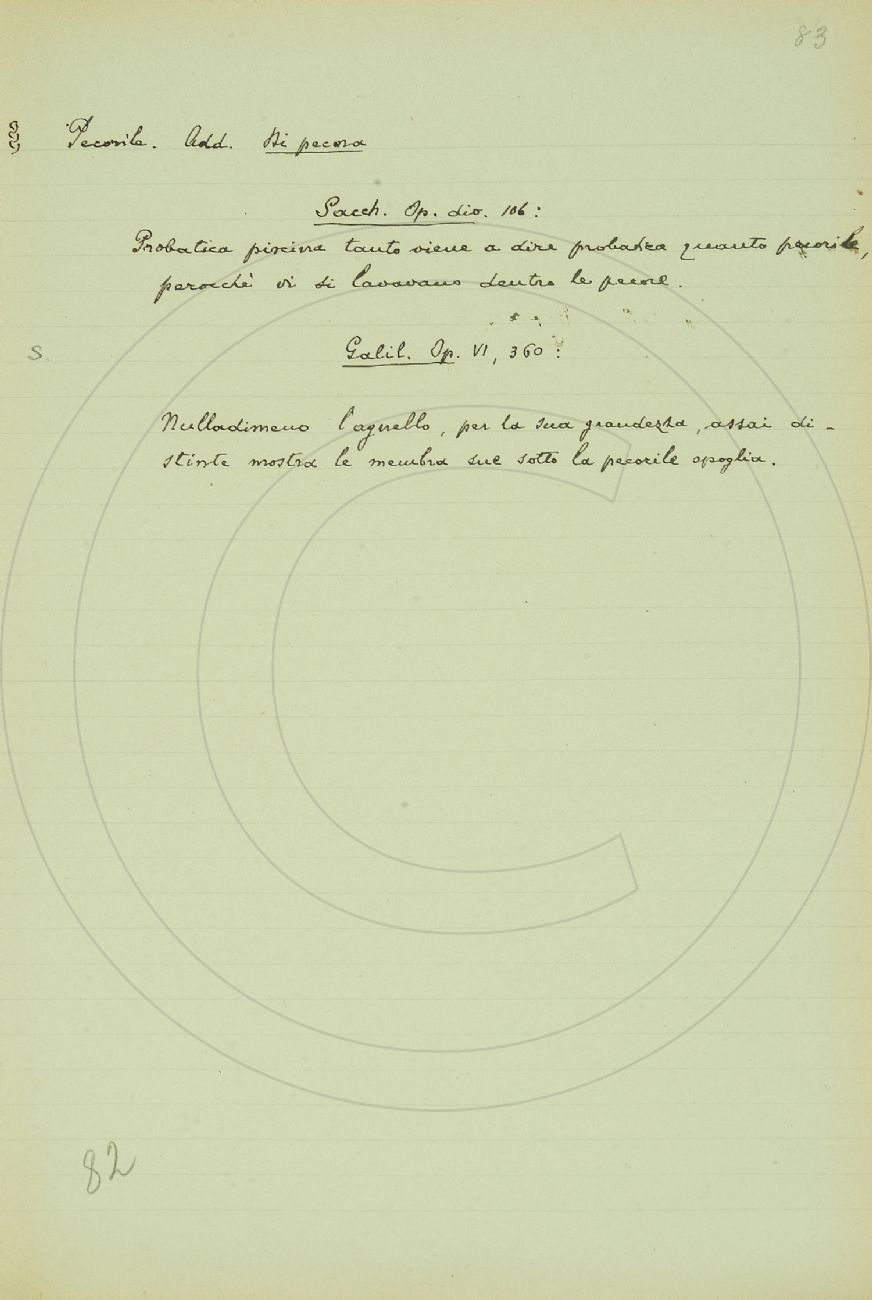 83
Pecorile. Add. Di pecora
Sacch. Op. div. 106:
Probatica piscina tanto viene a dire probatica quanto pecorile,
perocchè vi si lavavano dentro le pecore.
S.
Galil. Op. VI, 360:
Nulladimeno l'agnello, per la sua grandezza, assai di-
stinte mostra le membra sue sotto la pecorile spoglia.
82